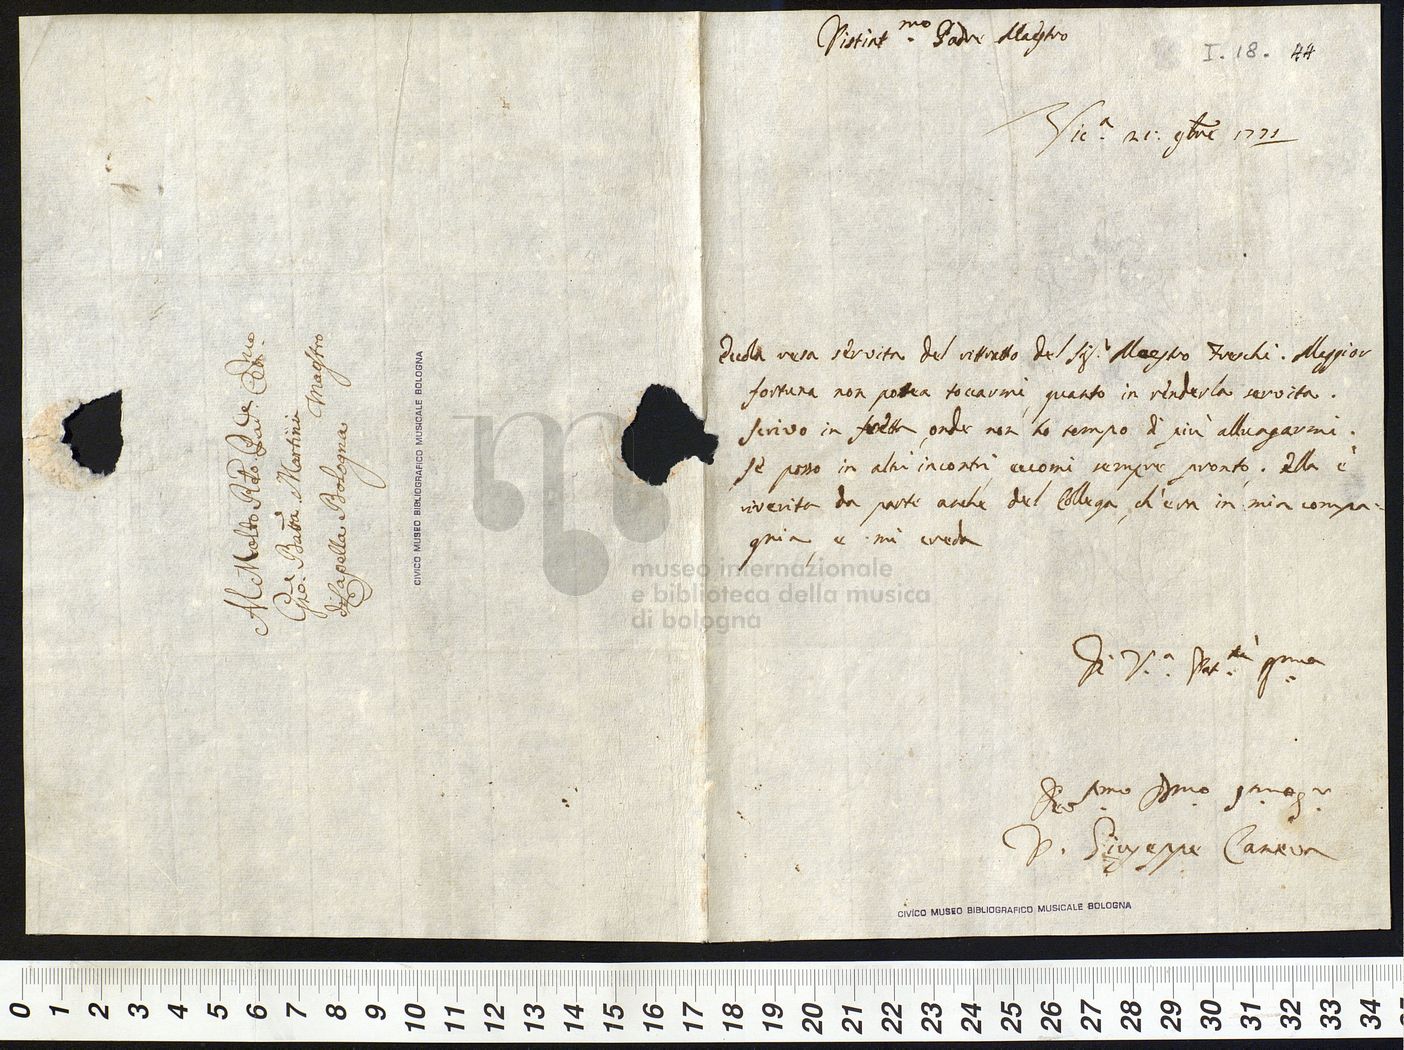 Distint.mo Padre Maestro
I. 18. 44
Vic.a 21: 9bre 1771
Eccola resa servita del ritratto del Sig.r Maestro Freschi. Maggior
fortuna non potea toccarmi, quanto in renderla servita.
Scrivo in fretta onde non ho tempo di più allungarmi.
Se posso in altri incontri eccomi sempre pronto. Ella è
riverita da parte anche del Collega, ch'era in mia compa-
gnia, e mi creda
Di V.a Pat.tà
D. Giuseppe Caneva
Al Molto R.do Pad.e
Gio: Batta Martini Maestro
di Capella Bologna
CIVICO MUSEO BIBLIOGRAFICO MUSICALE BOLOGNA
CIVICO MUSEO BIBLIOGRAFICO MUSICALE BOLOGNA
museo internazionale
e biblioteca della musica
di bologna
0 1 2 3 4 5 6 7 8 9 10 11 12 13 14 15 16 17 18 19 20 21 22 23 24 25 26 27 28 29 30 31 32 33 34